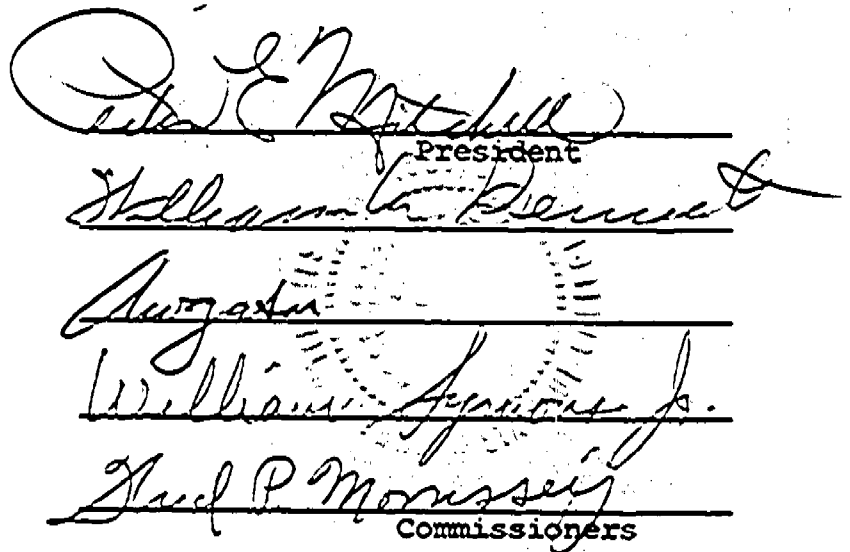 Peter E Mitchell
President
William M. Bennett
A.W. Gatov
William Symons Jr.
Fred P. Morrissey
Commissioners